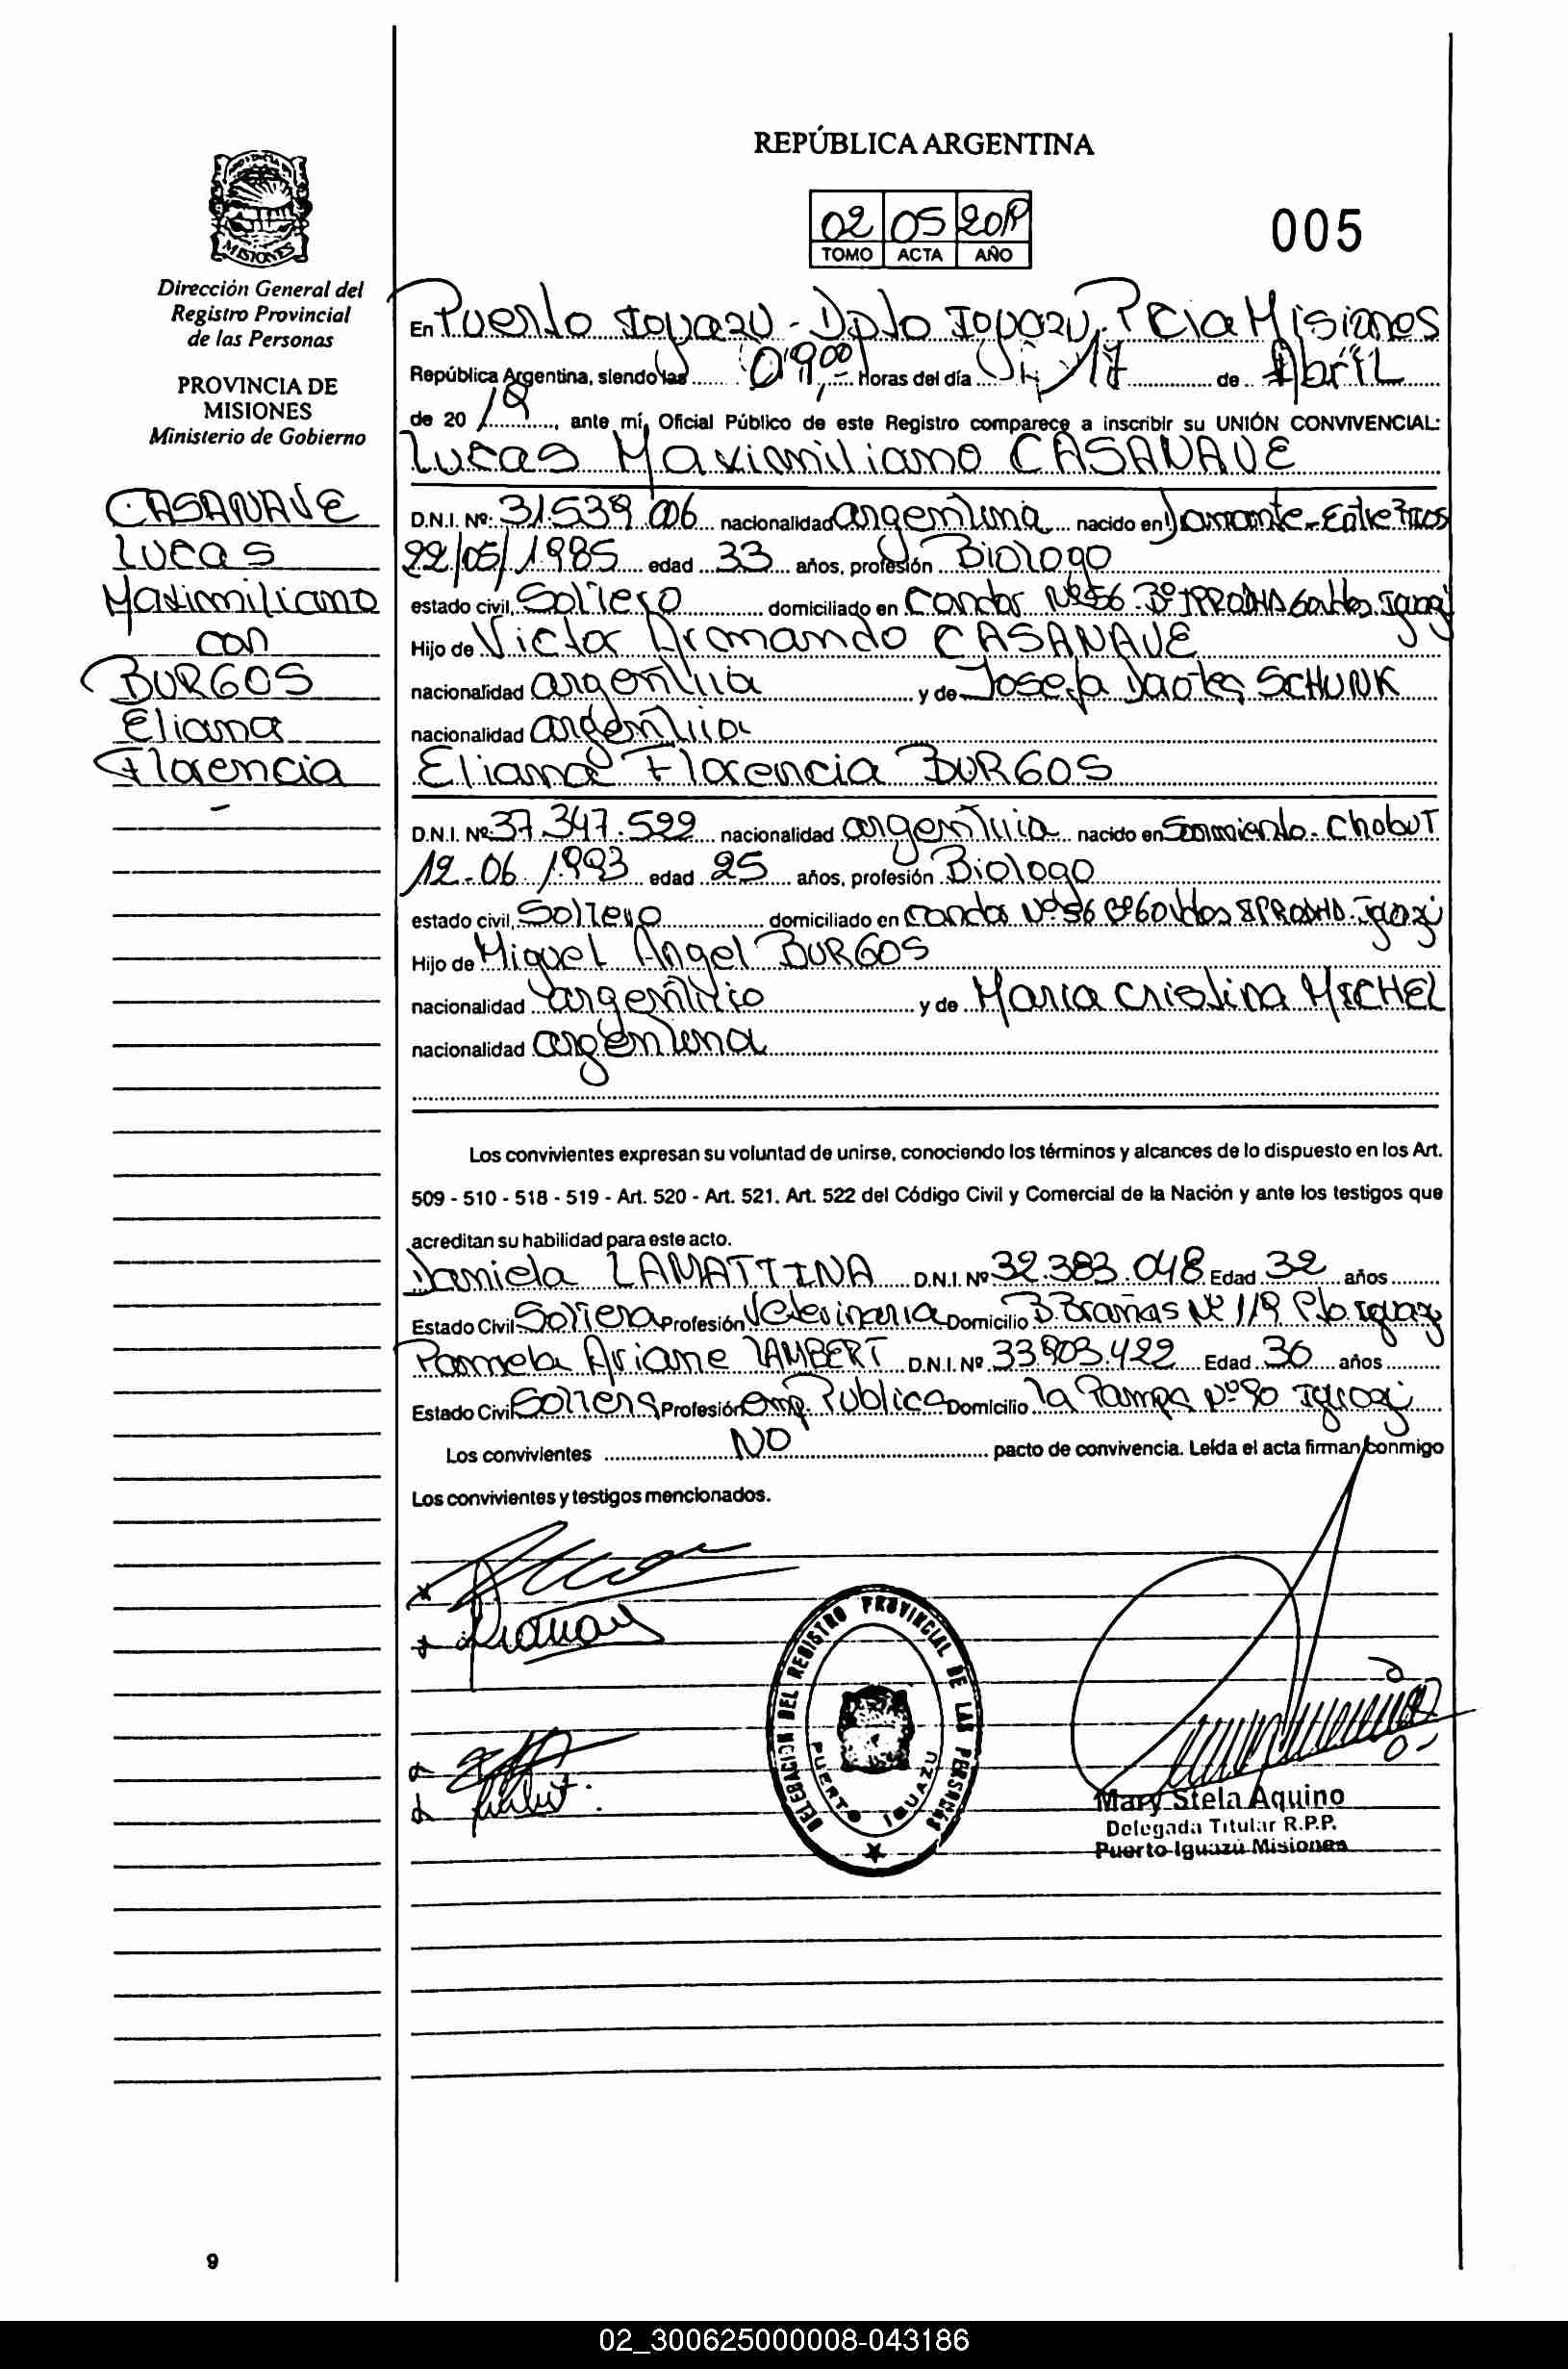 REPÚBLICA ARGENTINA
02 05 2019
TOMO ACTA AÑO
005
MISIONES
Dirección General del
Registro Provincial
de las Personas
PROVINCIA DE
MISIONES
Ministerio de Gobierno
CASANAVE
Lucas
Maximiliano
con
BURGOS
Eliana
Florencia
-
En Puerto Iguazu - Dpto Iguazu. Pcia Misiones
República Argentina, siendo las 09,00 horas del día 17 de Abril
de 2019, ante mí, Oficial Público de este Registro comparece a inscribir su UNIÓN CONVIVENCIAL:
Lucas Maximiliano CASANAVE
D.N.I. Nº: 31.539.006 nacionalidad argentina nacido en Diamante - Entre Rios
22/05/1985 edad 33 años, profesión Biologo
estado civil, Soltero domiciliado en Condor Nº 56 Bº IPRODHA 60 Vdas Iguazu
Hijo de Victor Armando CASANAVE
nacionalidad argentina y de Josefa SCHUNK
nacionalidad argentina
Eliana Florencia BURGOS
D.N.I. Nº 37.347.599 nacionalidad argentina nacido en Sarmiento - Chobut
12-06-1993 edad 25 años, profesión Biologo
estado civil, Soltero domiciliado en Condor Nº 56 Bº 60 Vdas IPRODHA - Iguazu
Hijo de Miguel Angel BURGOS
nacionalidad argentino y de Maria Cristina MICHEL
nacionalidad argentina
Los convivientes expresan su voluntad de unirse, conociendo los términos y alcances de lo dispuesto en los Art.
509 - 510 - 518 - 519 - Art. 520 - Art. 521. Art. 522 del Código Civil y Comercial de la Nación y ante los testigos que
acreditan su habilidad para este acto.
Daniela LAMATTINA D.N.I. Nº 32.383.048 Edad 32 años
Estado Civil Soltera Profesión Veterinaria Domicilio B. Brañas Nº 119 Pto. Iguazu
Pamela Ariane LAMBERT D.N.I. Nº 33.903.422 Edad 30 años
Estado Civil Soltera Profesión Emp. Publica Domicilio La Pampa Nº 90 Iguazu
Los convivientes NO pacto de convivencia. Leída el acta firman conmigo
Los convivientes y testigos mencionados.
DELEGACION DEL REGISTRO PROVINCIAL DE LAS PERSONAS
PUERTO IGUAZU
Mary Stela Aquino
Delegada Titular R.P.P.
Puerto Iguazú Misiones
9
02_300625000008-043186